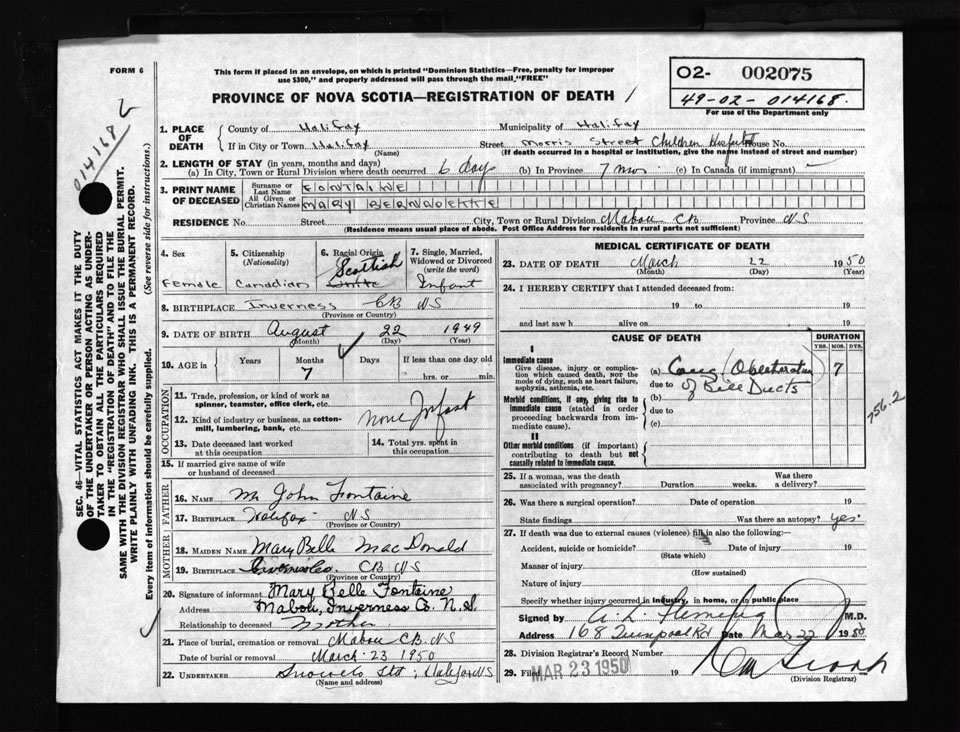 FORM 6
This form if placed in an envelope, on which is printed "Dominion Statistics—Free, penalty for improper
use $300," and properly addressed will pass through the mail "FREE"
PROVINCE OF NOVA SCOTIA—REGISTRATION OF DEATH
O2- 002075
49-02-014168.
For use of the Department only
014168
SEC. 46—VITAL STATISTICS ACT MAKES IT THE DUTY
OF THE UNDERTAKER OR PERSON ACTING AS UNDER-
TAKER TO OBTAIN ALL THE PARTICULARS REQUIRED
IN THE "REGISTRATION OF DEATH" AND TO FILE THE
SAME WITH THE DIVISION REGISTRAR WHO SHALL ISSUE THE BURIAL PERMIT.
WRITE PLAINLY WITH UNFADING INK. THIS IS A PERMANENT RECORD.
Every item of information should be carefully supplied. (See reverse side for instructions.)
1. PLACE OF DEATH
County of Halifax Municipality of Halifax
If in City or Town Halifax Street Morris Street Children Hospital House No.
(Name) (If death occurred in a hospital or institution, give the name instead of street and number)
2. LENGTH OF STAY (in years, months and days)
(a) In City, Town or Rural Division where death occurred 6 day (b) In Province 7 mos (c) In Canada (if immigrant)
3. PRINT NAME OF DECEASED
Surname or Last Name FONTAINE
All Given or Christian Names MARY BERNADETTE
RESIDENCE No. Street City, Town or Rural Division Mabou CB Province NS
(Residence means usual place of abode. Post Office Address for residents in rural parts not sufficient)
4. Sex Female
5. Citizenship (Nationality) Canadian
6. Racial Origin Scottish
7. Single, Married, Widowed or Divorced (write the word) Infant
8. BIRTHPLACE Inverness CB NS
(Province or Country)
9. DATE OF BIRTH August 22 1949
(Month) (Day) (Year)
10. AGE in Years Months 7 Days If less than one day old
hrs. or min.
OCCUPATION
11. Trade, profession, or kind of work as
spinner, teamster, office clerk, etc.
12. Kind of industry or business, as cotton-
mill, lumbering, bank, etc.
None Infant
13. Date deceased last worked
at this occupation
14. Total yrs. spent in
this occupation
15. If married give name of wife
or husband of deceased
FATHER
16. NAME Mr John Fontaine
17. BIRTHPLACE Halifax NS
(Province or Country)
MOTHER
18. MAIDEN NAME Mary Belle MacDonald
19. BIRTHPLACE CB NS
(Province or Country)
20. Signature of informant Mary Belle Fontaine
Address Mabou, Inverness Co. N.S.
Relationship to deceased Mother
21. Place of burial, cremation or removal Mabou CB. NS
Date of burial or removal March 23 1950
22. UNDERTAKER Snow Ltd; Halifax NS
(Name and address)
MEDICAL CERTIFICATE OF DEATH
23. DATE OF DEATH March 22 1950
(Month) (Day) (Year)
24. I HEREBY CERTIFY that I attended deceased from:
19 to 19
and last saw h alive on 19
CAUSE OF DEATH
DURATION
YRS. MOS. DYS.
I
Immediate cause
Give disease, injury or complica-
tion which caused death, NOT the
mode of dying, such as heart failure,
asphyxia, asthenia, etc.
(a) Cong Obliteration 7
due to of Bile Ducts
Morbid conditions, if any, giving rise to
immediate cause (stated in order
proceeding backwards from im-
mediate cause).
(b)
due to
(c)
II
Other morbid conditions (if important)
contributing to death but not
causally related to immediate cause.
756.2
25. If a woman, was the death
associated with pregnancy? Duration weeks. Was there
a delivery?
26. Was there a surgical operation? Date of operation 19
State findings Was there an autopsy? yes.
27. If death was due to external causes (violence) fill in also the following:—
Accident, suicide or homicide? Date of injury 19
(State which)
Manner of injury
(How sustained)
Nature of injury
Specify whether injury occurred in Industry, in home, or in public place
Signed by A. L. Fleming M.D.
Address 168 Quinpool Rd Date Mar 22 1950
28. Division Registrar's Record Number
29. Filed MAR 23 1950 19
(Division Registrar)